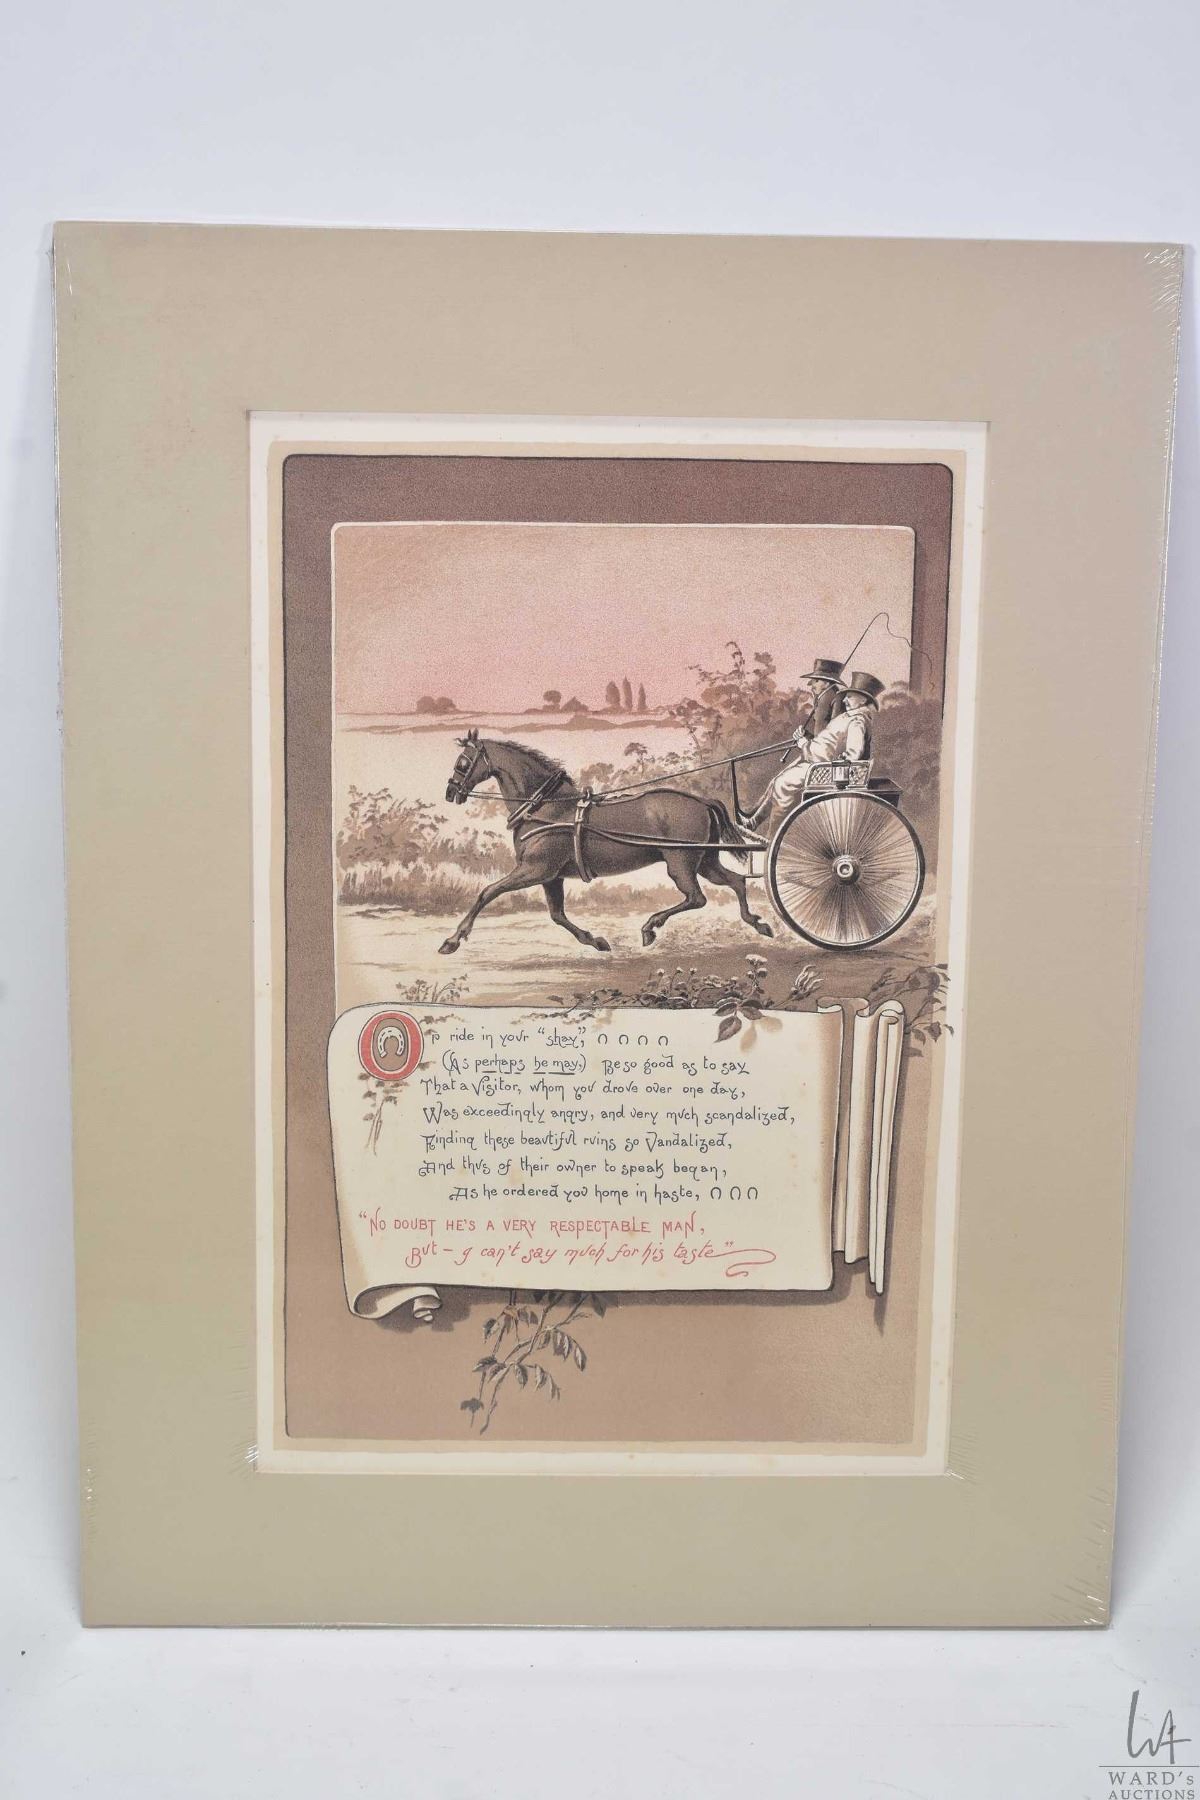 Or ride in your "shay",
(As perhaps he may,) Be so good as to say
That a Visitor, whom you drove over one day,
Was exceedingly angry, and very much scandalized,
Finding these beautiful ruins so Vandalized,
And thus of their owner to speak began,
As he ordered you home in haste,
"No doubt he's a very respectable man,
But – I can't say much for his taste"
WARD's
AUCTIONS